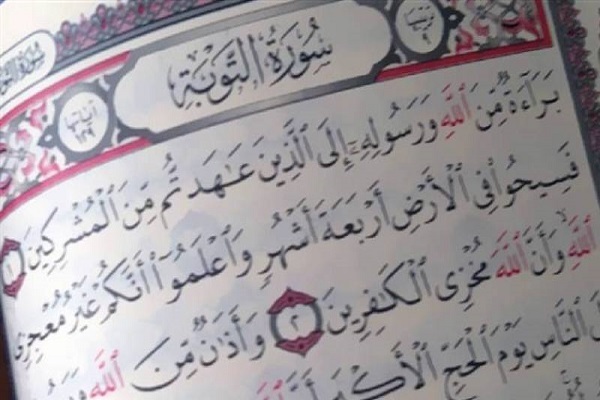 سُورَةُ التَّوْبَةِ
آياتها ١٢٩
بَرَآءَةٌ مِّنَ ٱللَّهِ وَرَسُولِهِۦٓ إِلَى ٱلَّذِينَ عَٰهَدتُّم مِّنَ ٱلْمُشْرِكِينَ ١
فَسِيحُوا۟ فِى ٱلْأَرْضِ أَرْبَعَةَ أَشْهُرٍ وَٱعْلَمُوٓا۟ أَنَّكُمْ غَيْرُ مُعْجِزِى
ٱللَّهِ وَأَنَّ ٱللَّهَ مُخْزِى ٱلْكَٰفِرِينَ ٢ وَأَذَٰنٌ مِّنَ ٱللَّهِ
ٱلنَّاسِ يَوْمَ ٱلْحَجِّ